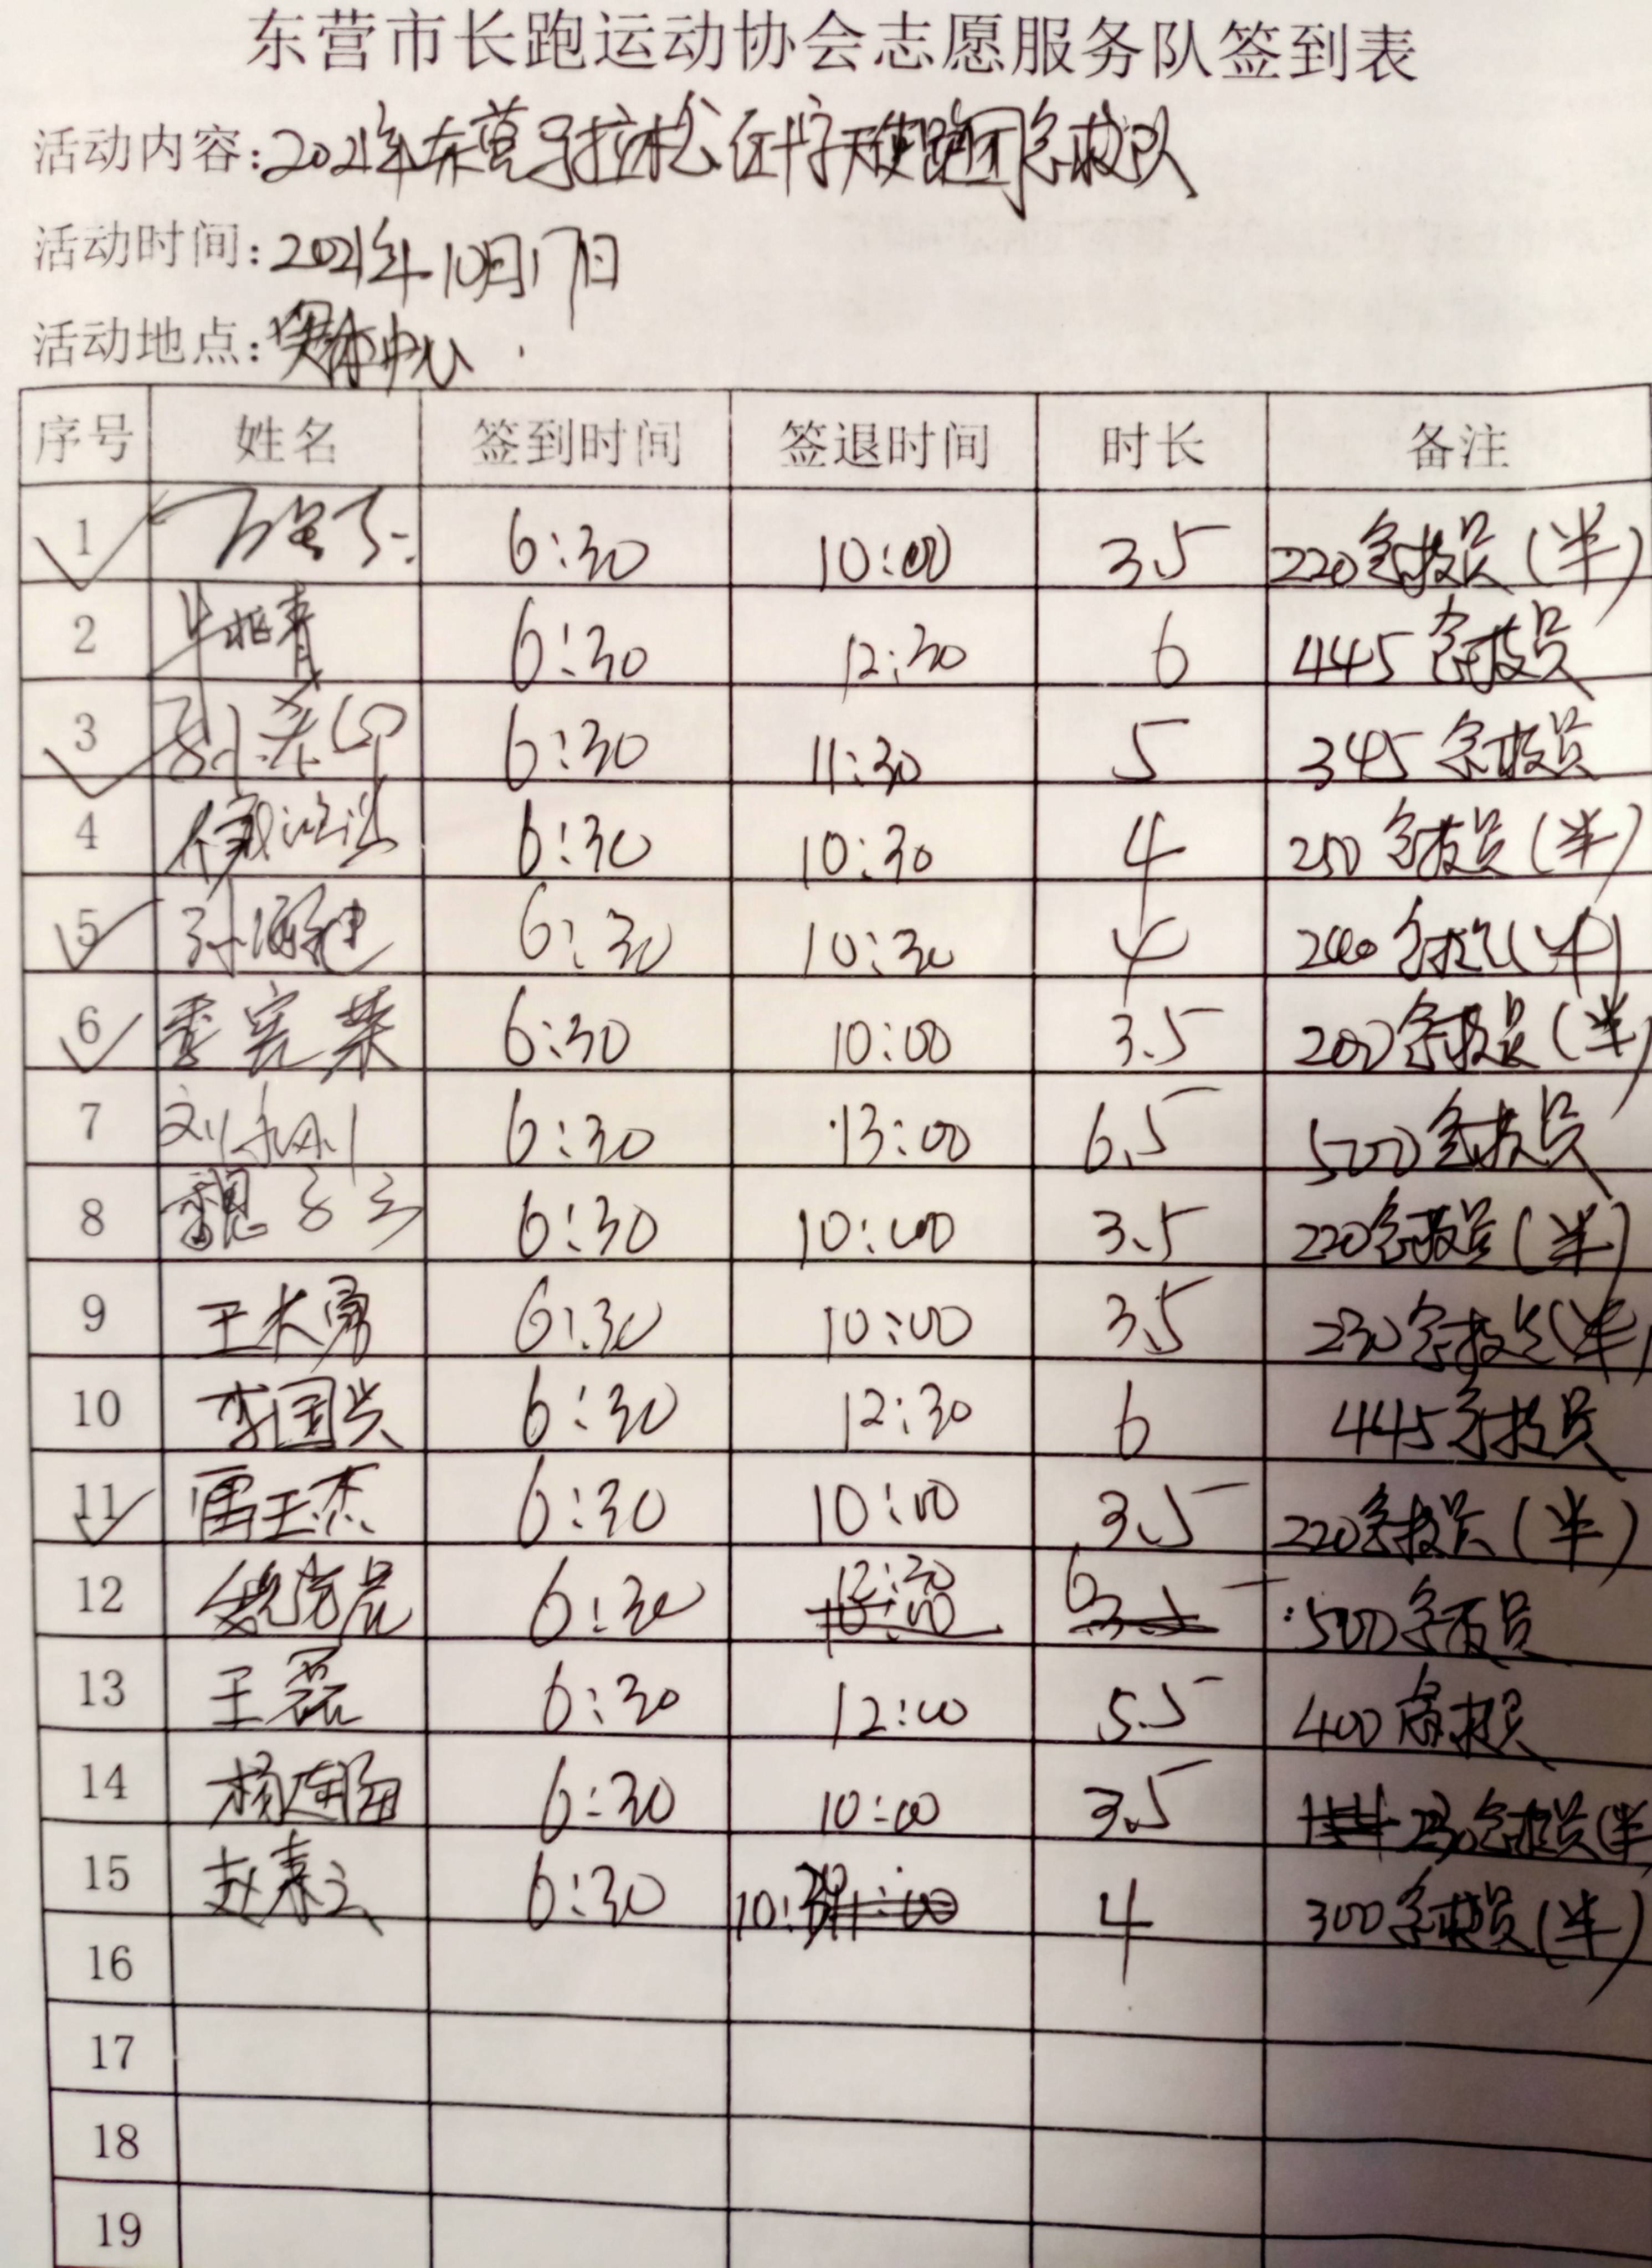 东营市长跑运动协会志愿服务队签到表
活动内容:2021年东营马拉松红十字天使跑团急救队
活动时间:2021年10月17日
活动地点:奥体中心
序号 姓名 签到时间 签退时间 时长 备注
1 6:30 10:00 3.5 220急救员(半)
2 6:30 12:30 6 445急救员
3 6:30 11:30 5 345急救员
4 6:30 10:30 4 250急救员(半)
5 6:30 10:30 4 240急救员(半)
6 季宪荣 6:30 10:00 3.5 200急救员(半)
7 6:30 13:00 6.5 500急救员
8 魏 6:30 10:00 3.5 220急救员(半)
9 王大勇 6:30 10:00 3.5 230急救员(半)
10 李国兴 6:30 12:30 6 445急救员
11 雷玉杰 6:30 10:00 3.5 220急救员(半)
12 6:30 12:30 6 500急救员
13 王磊 6:30 12:00 5.5 400急救员
14 杨连 6:30 10:00 3.5 230急救员(半)
15 赵 6:30 10:30 4 300急救员(半)
16
17
18
19